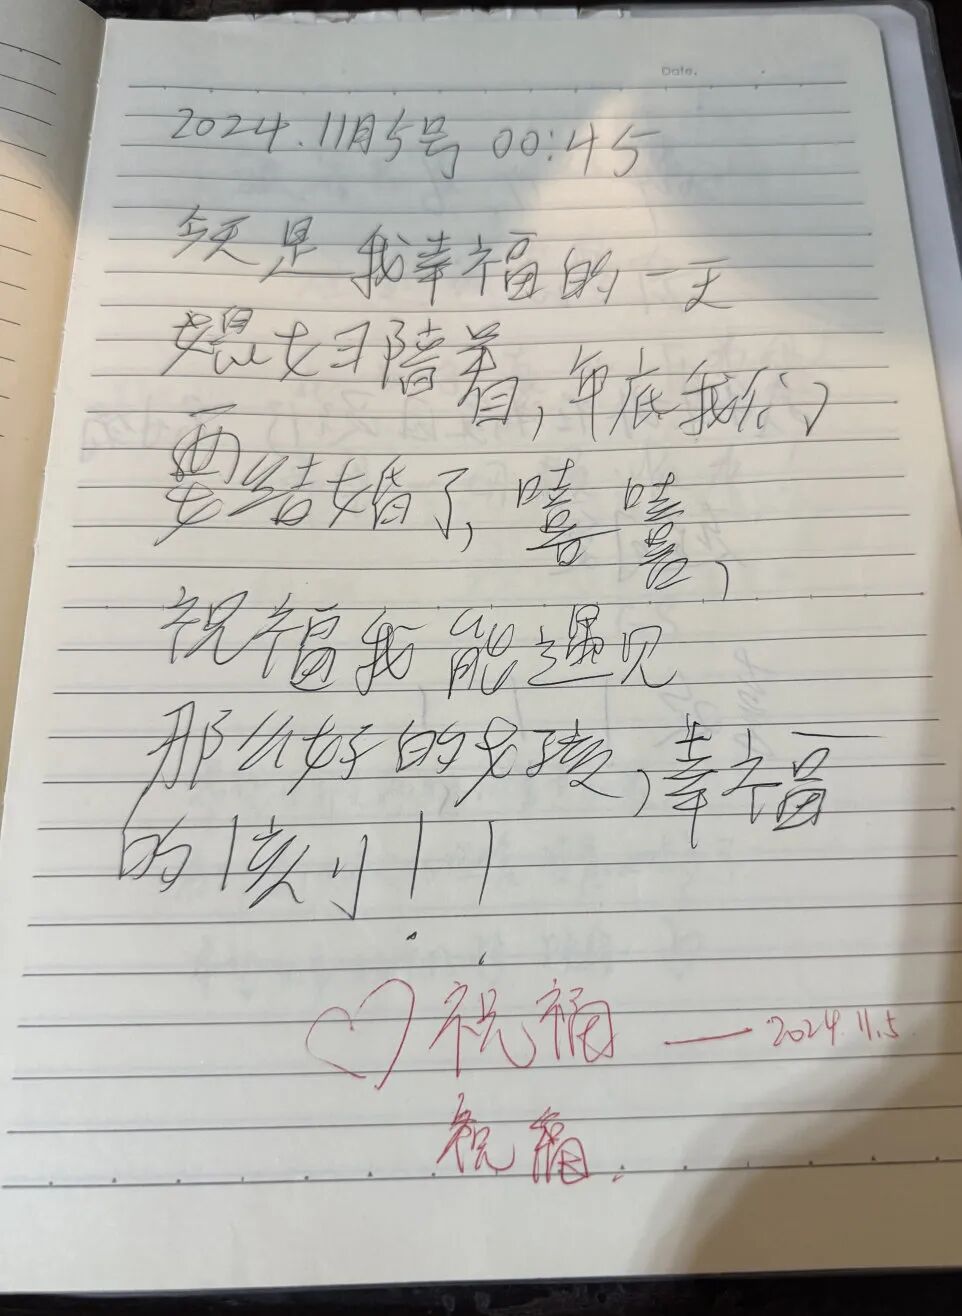 Date.
2024.11月5号 00:45
今天是我幸福的一天
媳妇陪着,年底我们
要结婚了,嘻嘻,
祝福我能遇见
那么好的女孩,幸福
的1亥刂!!
祝福——2024.11.5
祝福.